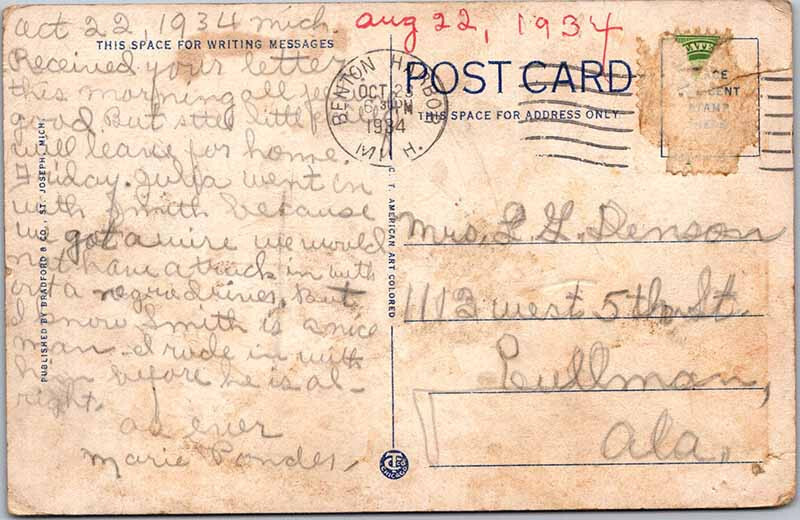 Oct 22, 1934 Mich.
Aug 22, 1934
THIS SPACE FOR WRITING MESSAGES
Received your letter
this morning all
good But
will leave for home
Friday. Julia went in
with Smith because
we got a wire we would
not have a truck in with
out a negro driver. But
I know Smith is a nice
man I rode in with
him before he is al-
right.
as ever
Marie Pondes,
PUBLISHED BY BRADFORD & CO., ST. JOSEPH, MICH.
C. T. AMERICAN ART COLORED
BENTON HARBOR
OCT 23
6:30 PM
1934
MICH.
POST CARD
THIS SPACE FOR ADDRESS ONLY
PLACE
CENT
STAMP
HERE
Mrs. L. G. Denson
1113 west 5th St.
Cullman,
Ala.